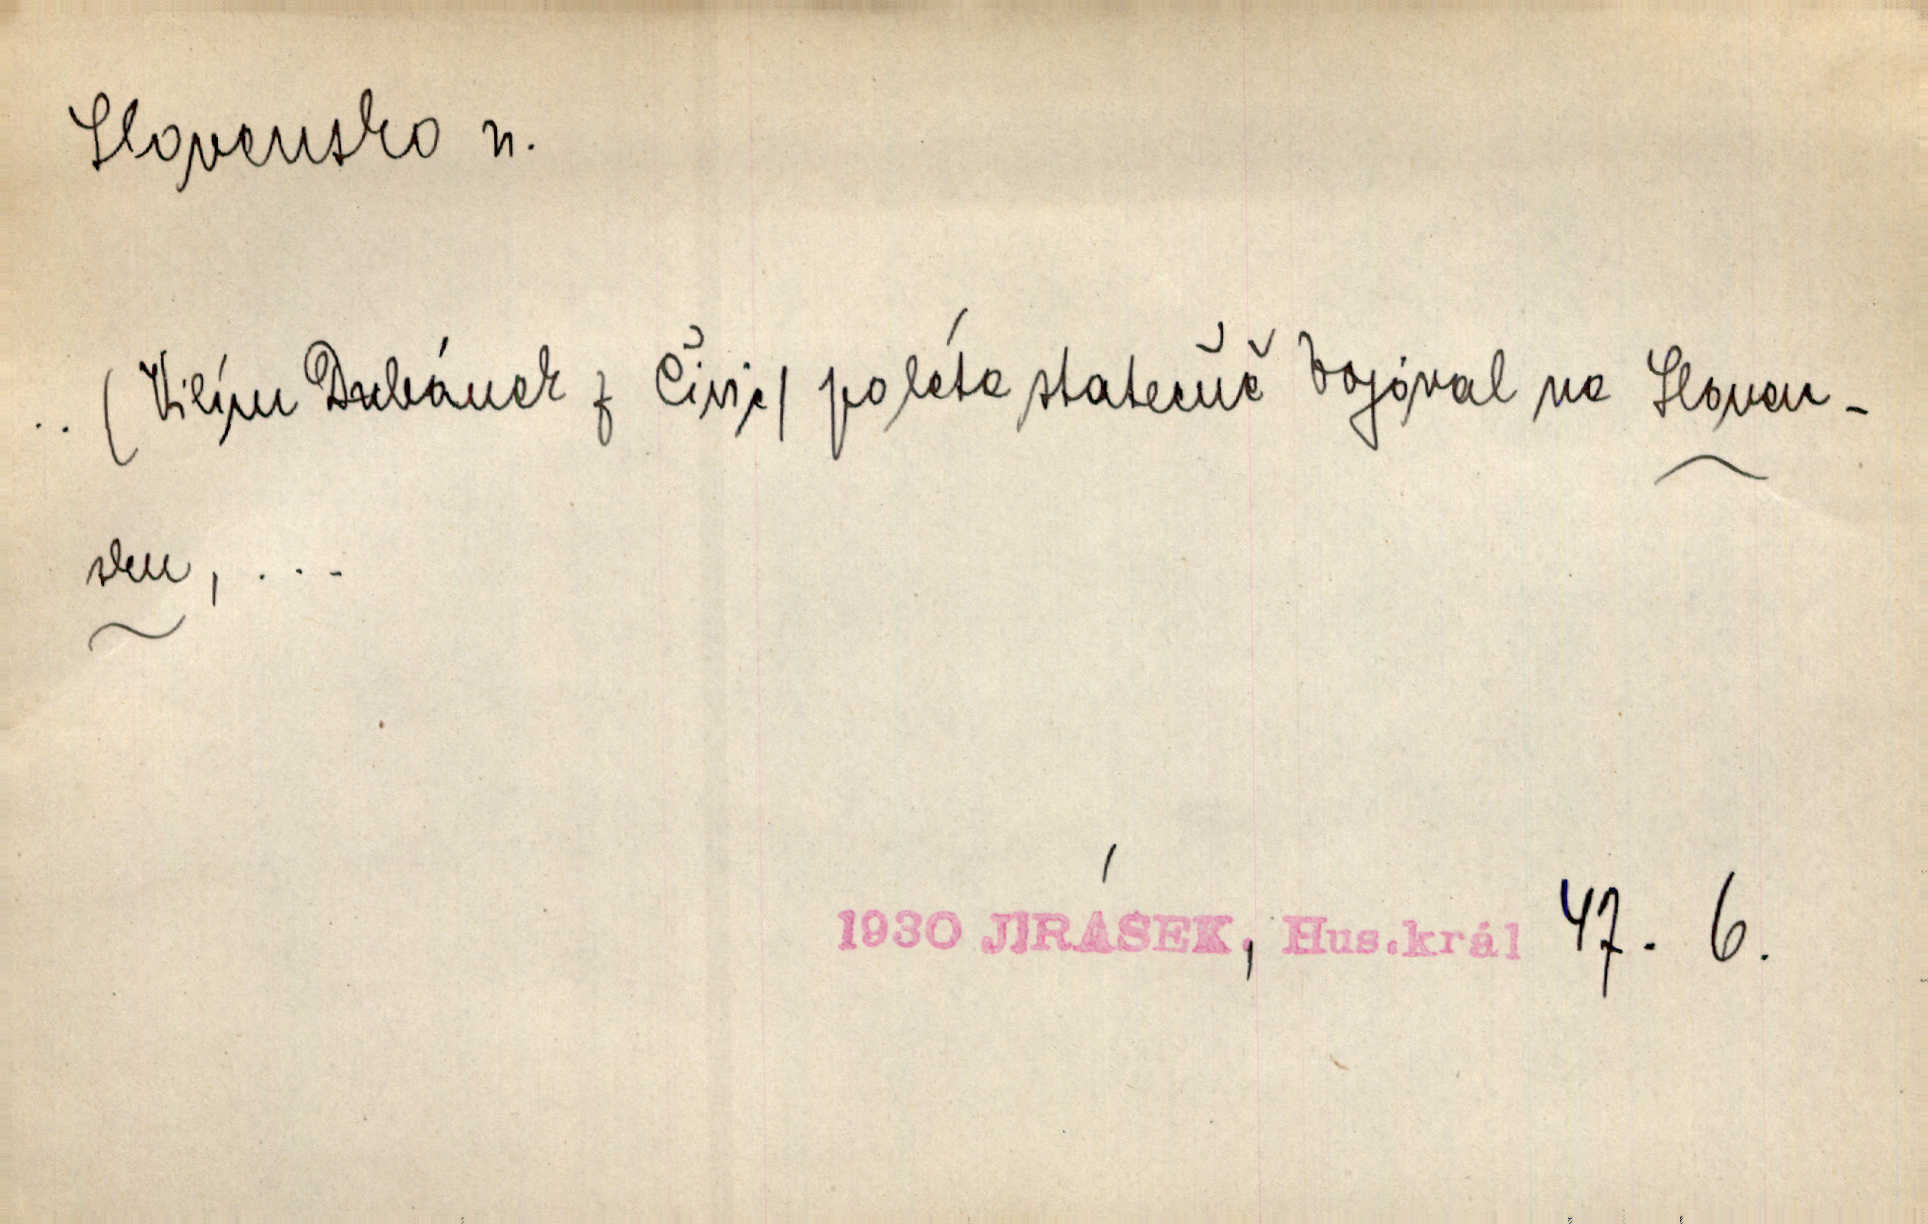 Slovensko n.
.. (Vilém Dubánek z Čivic) po léta statečně bojoval na Sloven-
sku, ...
1930 JIRÁSEK, Hus.král 47. 6.